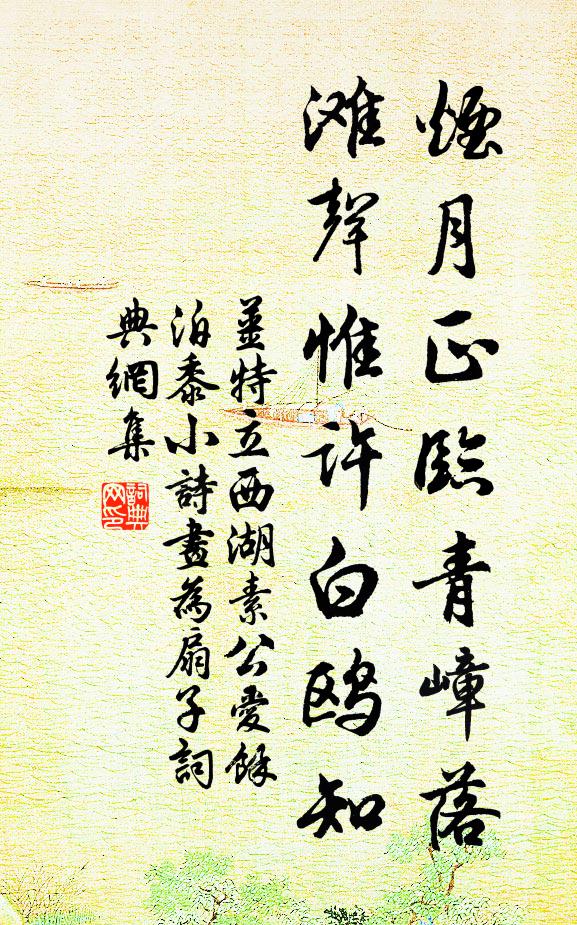 煙月正臨青嶂落
滩聲惟許白鸥知
姜特立西湖素公愛餘
泊黍小詩畫為扇子詞
典網集
詞典
网印